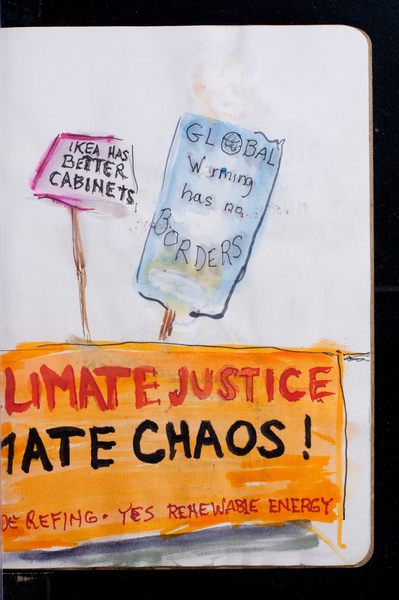 IKEA HAS
BETTER
CABINETS
GLOBAL
Warming
has no
BORDERS
LIMATE JUSTICE
MATE CHAOS!
DE REFING. YES RENEWABLE ENERGY